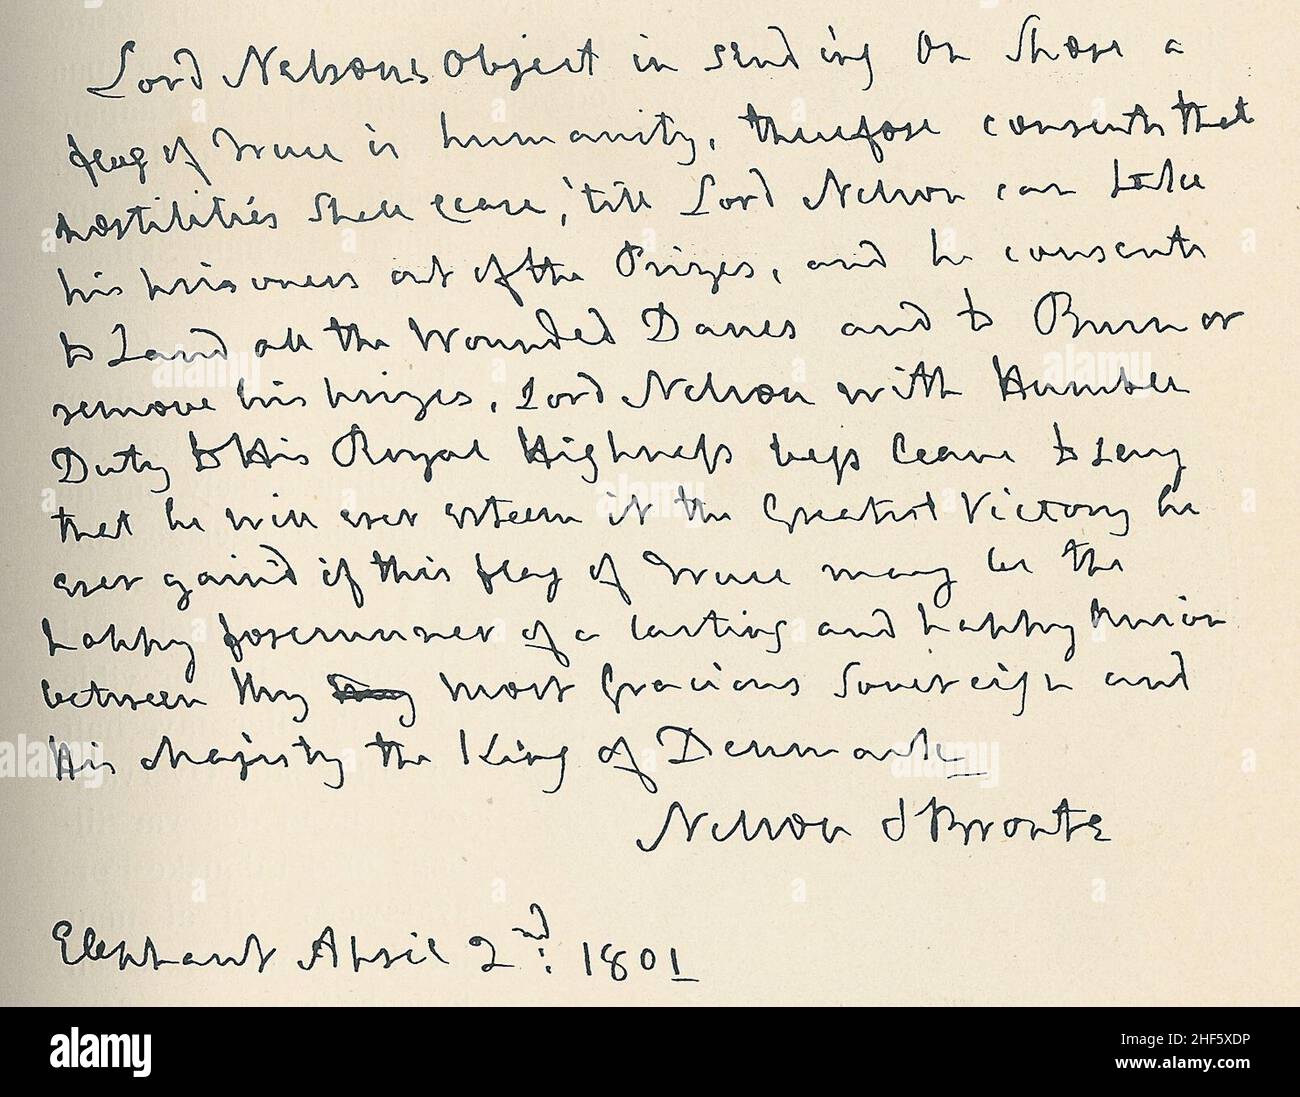 Lord Nelsons Object in sending on Shore a
flag of Truce is humanity, therefore consents that
hostilities shall cease, 'till Lord Nelson can take
his prisoners out of the Prizes, and he consents
to Land all the Wounded Danes and to Burn or
remove his prizes, Lord Nelson with Humble
Duty to His Royal Highness begs leave to say
that he will ever esteem it the Greatest Victory he
ever gain'd if this flag of Truce may be the
happy forerunner of a lasting and happy Union
between my most Gracious Sovereign and
His Majesty the King of Denmark
Nelson & Bronte
Elephant April 2nd: 1801
alamy
Image ID: 2HF5XDP
www.alamy.com